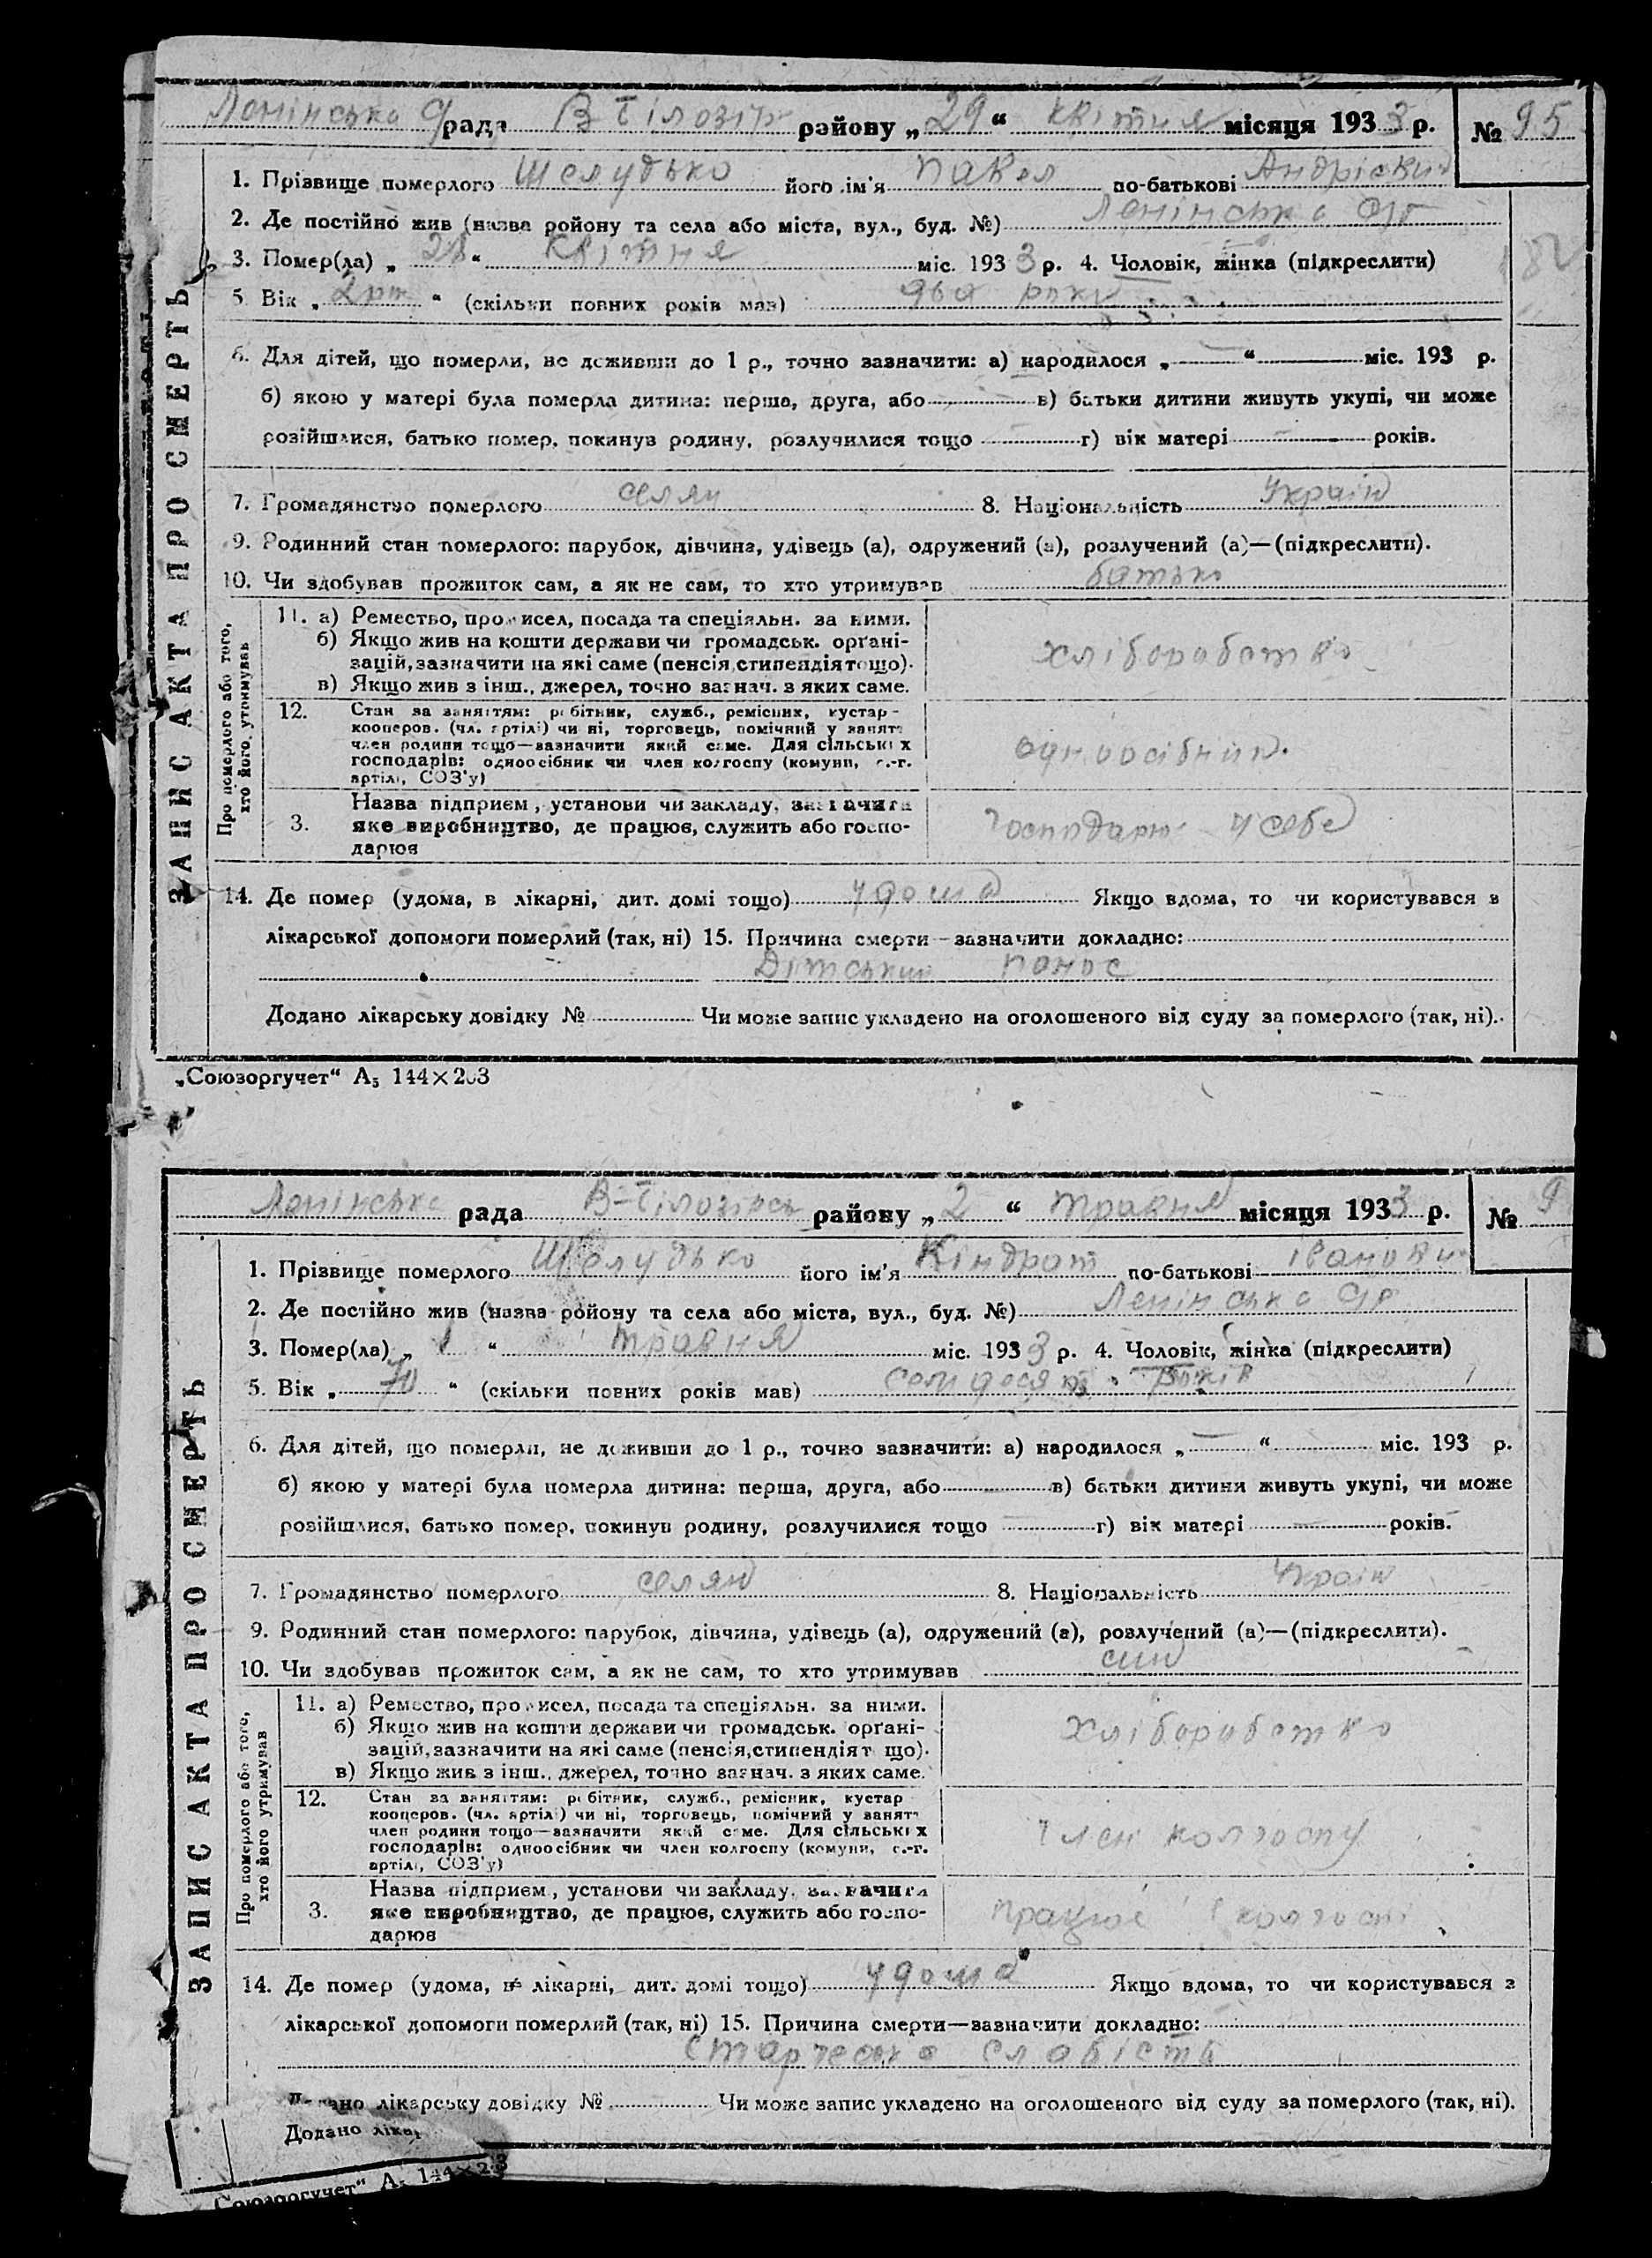 Ленінська рада В Білозір району „29“ квітня місяця 1933 р. № 95
1. Прізвище померлого Шелудько його ім'я Павел по-батькові Андрієвич
2. Де постійно жив (назва ройону та села або міста, вул., буд. №) Ленінська
3. Помер(ла) „28“ квітня міс. 1933 р. 4. Чоловік, жінка (підкреслити)
5. Вік „2 рт“ (скільки повних років мав) два роки
6. Для дітей, що померли, не доживши до 1 р., точно зазначити: а) народилося „ “ міс. 193 р.
б) якою у матері була померла дитина: перша, друга, або в) батьки дитини живуть укупі, чи може
розійшлися, батько помер, покинув родину, розлучилися тощо г) вік матері років.
7. Громадянство померлого селян 8. Національність Україн
9. Родинний стан померлого: парубок, дівчина, удівець (а), одружений (а), розлучений (а)—(підкреслити).
10. Чи здобував прожиток сам, а як не сам, то хто утримував батько
Про померлого або того, хто його утримував
11. а) Ремество, промисел, посада та спеціяльн. за ними.
б) Якщо жив на кошти держави чи громадськ. орґані-
зацій, зазначити на які саме (пенсія, стипендія тощо).
в) Якщо жив з інш., джерел, точно зазнач. з яких саме.
хлібороботво
12. Стан за заняттям: робітник, служб., ремісник, кустар-
кооперов. (чл. артілі) чи ні, торговець, помічний у занятт
член родини тощо—зазначити який саме. Для сільських
господарів: одноосібник чи член колгоспу (комуни, с.-г.
артілі, СОЗ'у)
одноосібник.
3. Назва підприєм., установи чи закладу, зазначити
яке виробництво, де працює, служить або госпо-
дарює
господарює у себе
14. Де помер (удома, в лікарні, дит. домі тощо) удома Якщо вдома, то чи користувався з
лікарської допомоги померлий (так, ні) 15. Причина смерти—зазначити докладно:
Дітський понос
Додано лікарську довідку № Чи може запис укладено на оголошеного від суду за померлого (так, ні).
ЗАПИС АКТА ПРО СМЕРТЬ
„Союзоргучет“ А₅ 144×203
Ленінська рада В-Білозірсь району „2“ травня місяця 1933 р. № 9
1. Прізвище померлого Шелудько його ім'я Кіндрат по-батькові Іванови
2. Де постійно жив (назва ройону та села або міста, вул., буд. №) Ленінська
3. Помер(ла) „1“ травня міс. 1933 р. 4. Чоловік, жінка (підкреслити)
5. Вік „70“ (скільки повних років мав) семидесят років
6. Для дітей, що померли, не доживши до 1 р., точно зазначити: а) народилося „ “ міс. 193 р.
б) якою у матері була померла дитина: перша, друга, або в) батьки дитини живуть укупі, чи може
розійшлися, батько помер, покинув родину, розлучилися тощо г) вік матері років.
7. Громадянство померлого селян 8. Національність Україн
9. Родинний стан померлого: парубок, дівчина, удівець (а), одружений (а), розлучений (а)—(підкреслити).
10. Чи здобував прожиток сам, а як не сам, то хто утримував син
Про померлого або того, хто його утримував
11. а) Ремество, промисел, посада та спеціяльн. за ними.
б) Якщо жив на кошти держави чи громадськ. орґані-
зацій, зазначити на які саме (пенсія, стипендія тощо).
в) Якщо жив з інш., джерел, точно зазнач. з яких саме.
хлібороботво
12. Стан за заняттям: робітник, служб., ремісник, кустар
кооперов. (чл. артілі) чи ні, торговець, помічний у занятт
член родини тощо—зазначити який саме. Для сільських
господарів: одноосібник чи член колгоспу (комуни, с.-г.
артілі, СОЗ'у)
Член колгоспу
3. Назва підприєм., установи чи закладу, зазначити
яке виробництво, де працює, служить або госпо-
дарює
працює в колгоспі
14. Де помер (удома, в лікарні, дит. домі тощо) удома Якщо вдома, то чи користувався з
лікарської допомоги померлий (так, ні) 15. Причина смерти—зазначити докладно:
Старческа слабість
Додано лікарську довідку № Чи може запис укладено на оголошеного від суду за померлого (так, ні).
Додано лікар
ЗАПИС АКТА ПРО СМЕРТЬ
Союзоргучет“ А₅ 144×203